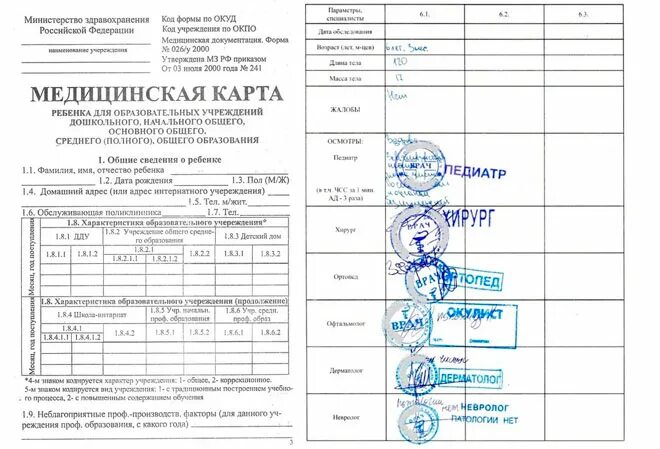 Министерство здравоохранения
Российской Федерации
наименование учреждения
Код формы по ОКУД
Код учреждения по ОКПО
Медицинская документация. Форма
№ 026/у 2000
Утверждена МЗ РФ приказом
От 03 июля 2000 года № 241
МЕДИЦИНСКАЯ КАРТА
РЕБЕНКА ДЛЯ ОБРАЗОВАТЕЛЬНЫХ УЧРЕЖДЕНИЙ
ДОШКОЛЬНОГО, НАЧАЛЬНОГО ОБЩЕГО,
ОСНОВНОГО ОБЩЕГО,
СРЕДНЕГО (ПОЛНОГО), ОБЩЕГО ОБРАЗОВАНИЯ
1. Общие сведения о ребенке
1.1. Фамилия, имя, отчество ребенка
1.2. Дата рождения 1.3. Пол (М/Ж)
1.4. Домашний адрес (или адрес интернатного учреждения)
1.5. Тел. м/жит.
1.6. Обслуживающая поликлиника 1.7. Тел.
Месяц, год поступления
1.8. Характеристика образовательного учреждения*
1.8.1 ДДУ 1.8.2 Учреждение общего среднего образования 1.8.3 Детский дом
1.8.1.1 1.8.1.2 1.8.2.1 1.8.2.2 1.8.3.1 1.8.3.2
1.8.2.1.1 1.8.2.1.2
Месяц, год поступления
1.8. Характеристика образовательного учреждения (продолжение)
1.8.4 Школа-интернат 1.8.5 Учр. начальн. проф. образования 1.8.6 Учр. средн. проф. образ
1.8.4.1 1.8.4.2 1.8.5.1 1.8.5.2 1.8.6.1 1.8.6.2
1.8.4.1.1 1.8.4.1.2
*4-м знаком кодируется характер учреждения: 1- общее, 2- коррекционное.
5-м знаком кодируется вид учреждения: 1- с традиционным построением учебно-
го процесса, 2- с повышенным содержанием обучения
1.9. Неблагоприятные проф.-производств. факторы (для данного уч-
реждения проф. образования, с какого года)
3
Параметры, специалисты 6.1. 6.2. 6.3.
Дата обследования
Возраст (лет, м-цев)
Длина тела 120
Масса тела
ЖАЛОБЫ Нет
ОСМОТРЫ:
Педиатр
ВРАЧ ПЕДИАТР
(в т.ч. ЧСС за 1 мин.
АД - 3 раза)
Хирург ВРАЧ ХИРУРГ
Ортопед ВРАЧ ОРТОПЕД
Офтальмолог ВРАЧ ОКУЛИСТ
Дерматолог ДЕРМАТОЛОГ
Невролог НЕВРОЛОГ
ПАТОЛОГИИ НЕТ